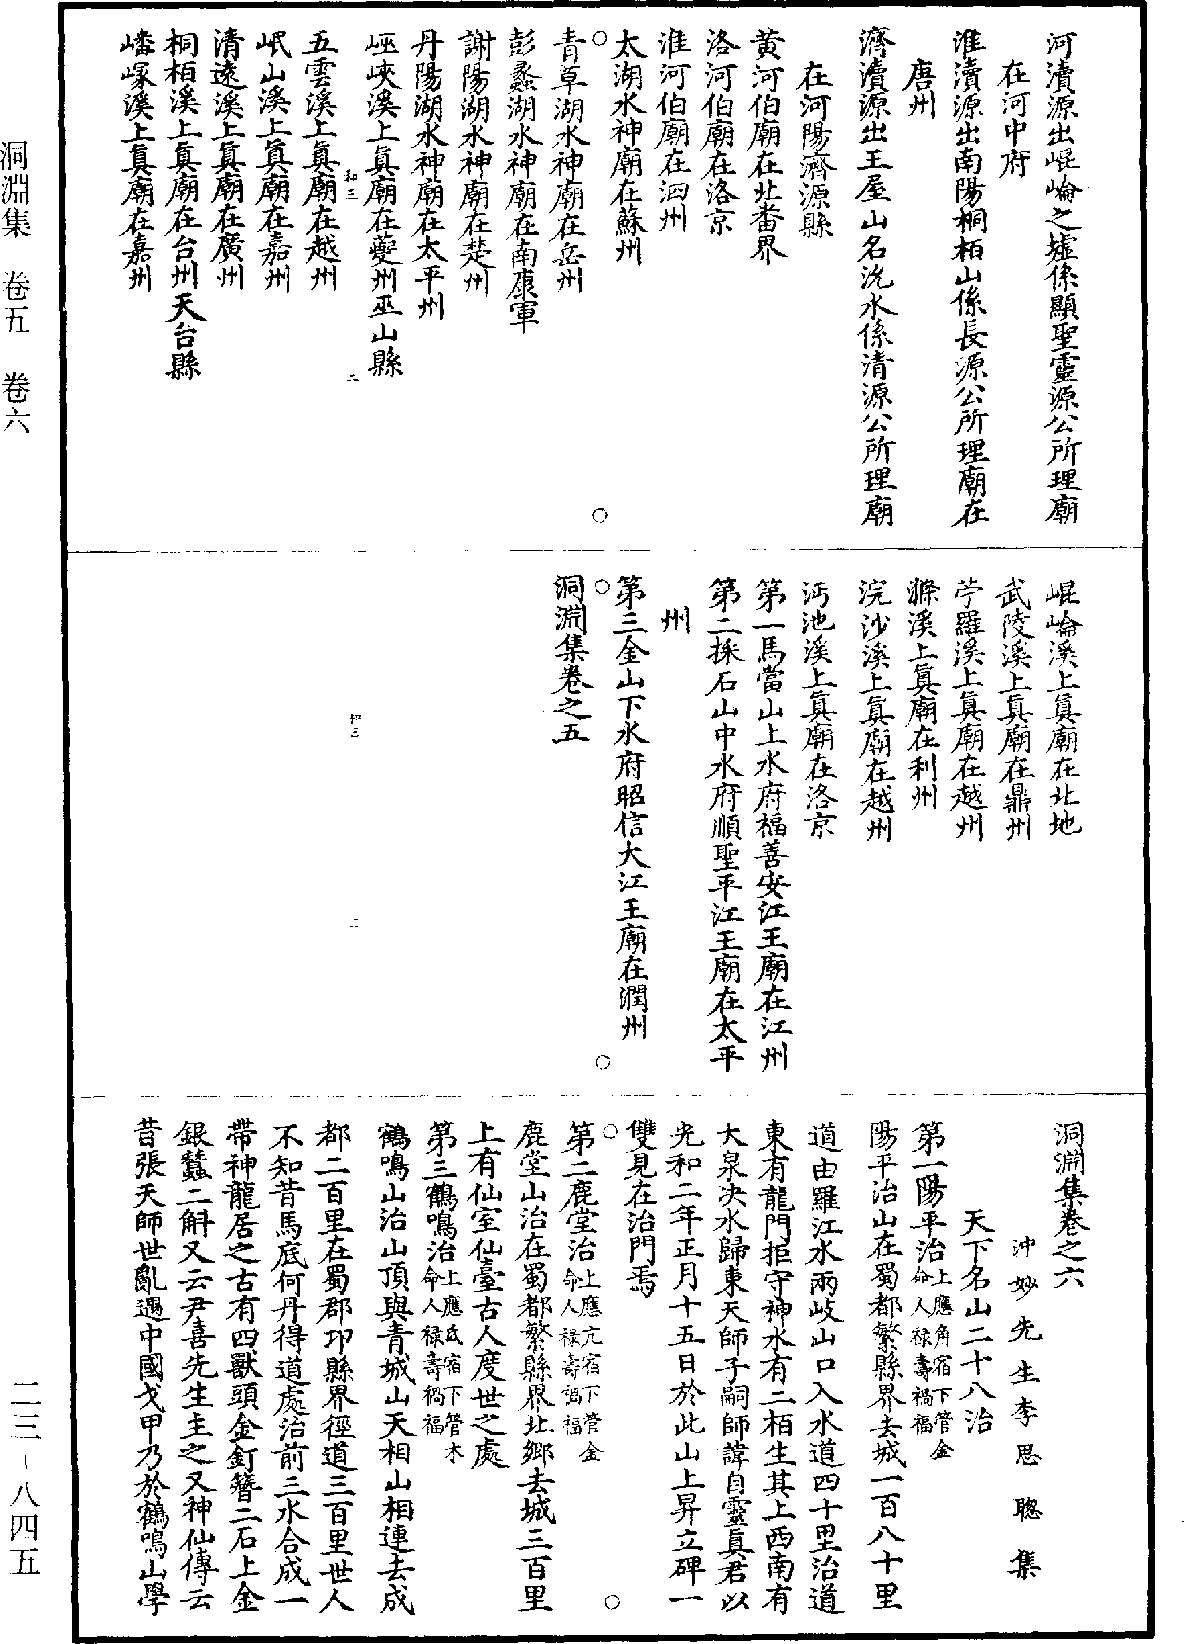 河瀆源出崐崘之墟係顯聖靈源公所理廟
在河中府
淮瀆源出南陽桐栢山係長源公所理廟在
唐州
濟瀆源出王屋山名沇水係清源公所理廟
在河陽濟源縣
黄河伯廟在北番界
洛河伯廟在洛京
淮河伯廟在泗州
太湖水神廟在蘇州
青草湖水神廟在岳州
彭蠡湖水神廟在南康軍
謝陽湖水神廟在楚州
丹陽湖水神廟在太平州
巫峽溪上真廟在夔州巫山縣
和三 二
五雲溪上真廟在越州
岷山溪上真廟在嘉州
清遠溪上真廟在廣州
桐栢溪上真廟在台州天台縣
嶓塚溪上真廟在嘉州
崐崘溪上真廟在北地
武陵溪上真廟在鼎州
苧羅溪上真廟在越州
滌溪上真廟在利州
浣沙溪上真廟在越州
沔池溪上真廟在洛京
第一馬當山上水府福善安江王廟在江州
第二採石山中水府順聖平江王廟在太平
州
第三金山下水府昭信大江王廟在潤州
洞淵集卷之五
和三
洞淵集卷之六
沖妙先生李思聰集
天下名山二十八治
第一陽平治上應角宿下管金命人禄壽禍福
陽平治山在蜀都繁縣界去城一百八十里
道由羅江水兩岐山口入水道四十里治道
東有龍門拒守神水有二栢生其上西南有
大泉决水歸東天師子嗣師諱自靈真君以
光和二年正月十五日於此山上昇立碑一
雙見在治門焉
第二鹿堂治上應亢宿下管金命人禄壽禍福
鹿堂山治在蜀都繁縣界北鄉去城三百里
上有仙室仙臺古人度世之處
第三鶴鳴治上應氐宿下管木命人禄壽禍福
鶴鳴山治山頂與青城山天相山相連去成
都二百里在蜀郡卭縣界徑道三百里世人
不知昔馬底何丹得道處治前三水合成一
帶神龍居之古有四獸頭金釘簪二石上金
銀蠶二斛又云尹喜先生主之又神仙傳云
昔張天師世亂遇中國戈甲乃於鶴鳴山學
洞淵集 卷五 卷六
二三－八四五